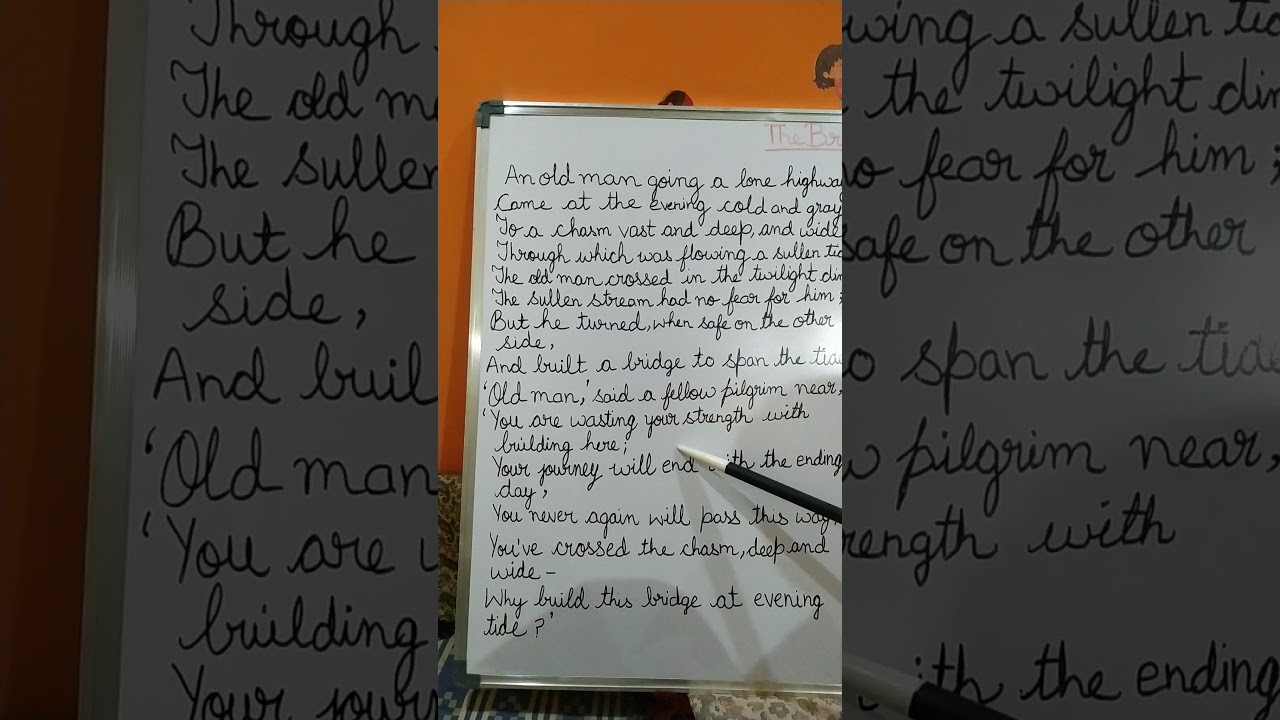 The Br
An old man going a lone highway
Came at the evening cold and gray
To a chasm vast and deep, and wide
Through which was flowing a sullen tid
The old man crossed in the twilight dim
The sullen stream had no fear for him;
But he turned, when safe on the other
side,
And built a bridge to span the tide
'Old man,' said a fellow pilgrim near,
'You are wasting your strength with
building here;
Your journey will end with the ending
day,
You never again will pass this way,
You've crossed the chasm, deep and
wide -
Why build this bridge at evening
tide?'